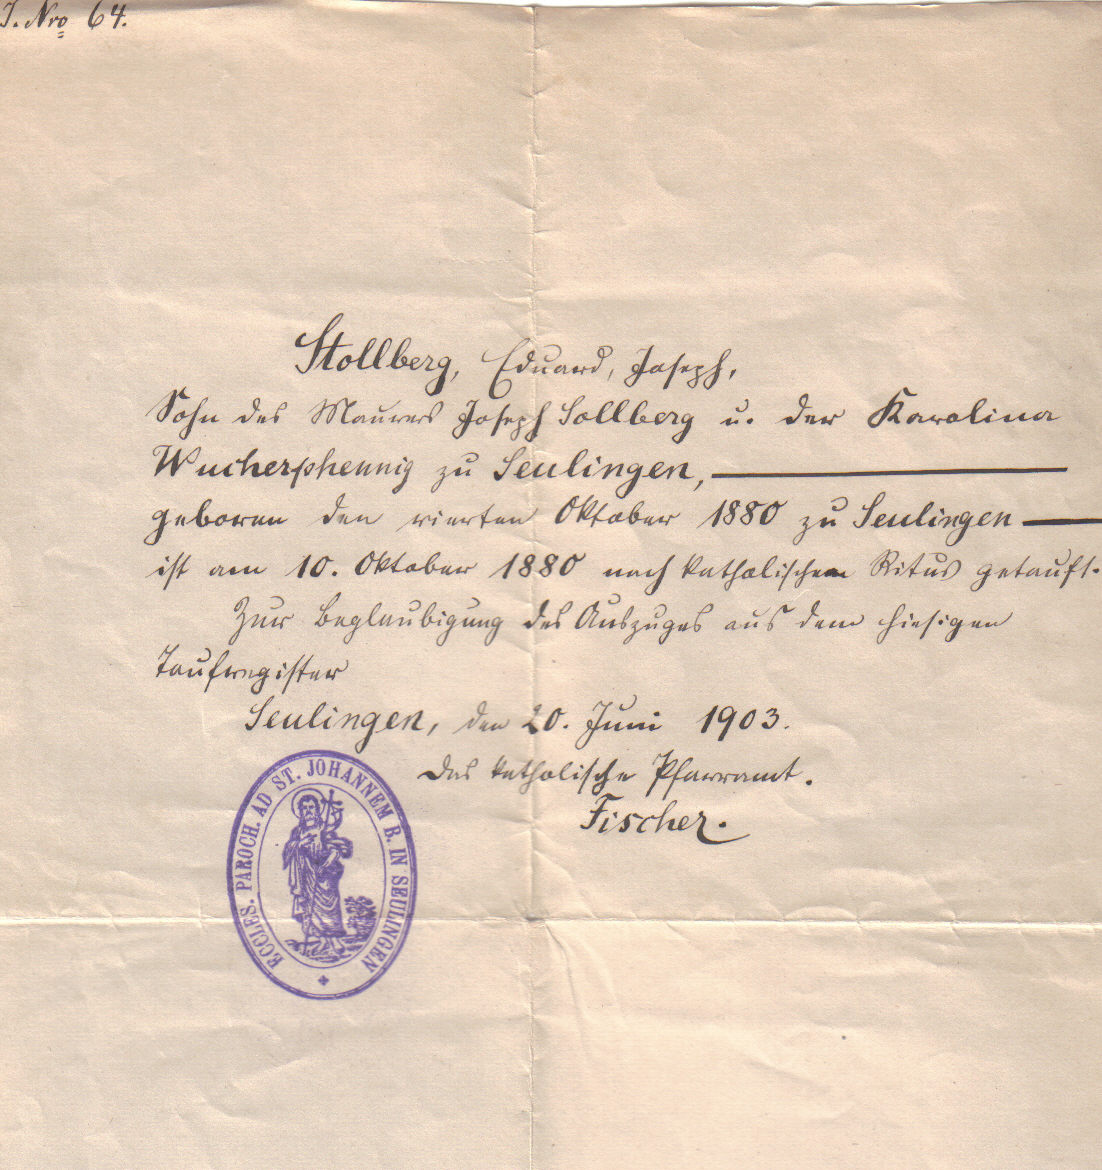 J. Nro 64.
Stollberg, Eduard, Joseph,
Sohn des Maurers Joseph Sollberg u. der Karolina
Wucherphennig zu Seulingen,
geboren den vierten Oktober 1880 zu Seulingen
ist am 10. Oktober 1880 nach katholischem Ritus getauft.
Zur Beglaubigung des Auszuges aus dem hiesigen
Taufregister
Seulingen, den 20. Juni 1903.
Das katholische Pfarramt.
Fischer.
ECCLES. PAROCH. AD ST. JOHANNEM B. IN SEULINGEN